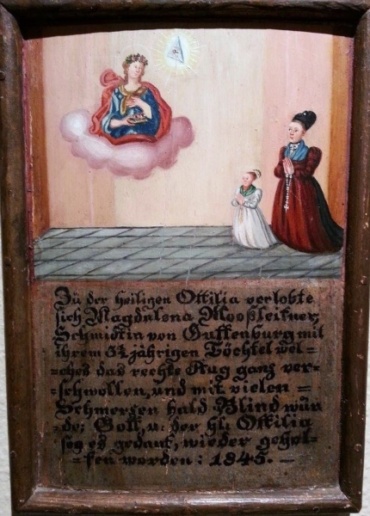 Zu der heiligen Ottilia verlobte
sich Magdalena Moosleitner,
Schmidtin von Guttenburg mit
ihrem 3¼ jährigen Töchtel wel=
=ches das rechte Aug ganz ver=
=schwollen, und mit vielen =
Schmerzen bald Blind wür
de: Gott, u: der hl: Ottilia
sey es gedankt, wieder gehol=
=fen worden: 1845. —